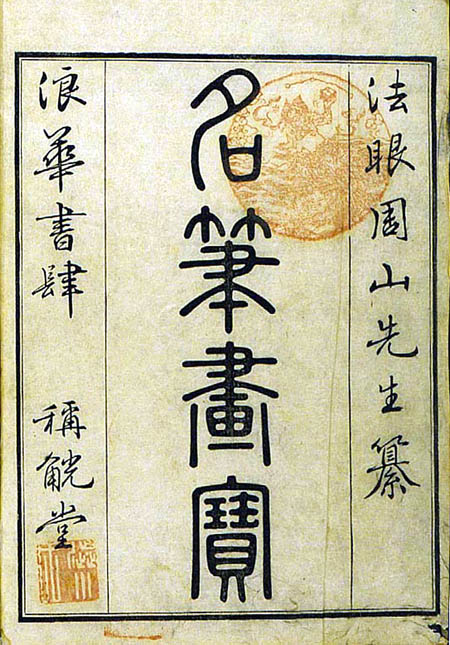 法眼周山先生纂
名筆畫寶
浪華書肆 稱觥堂